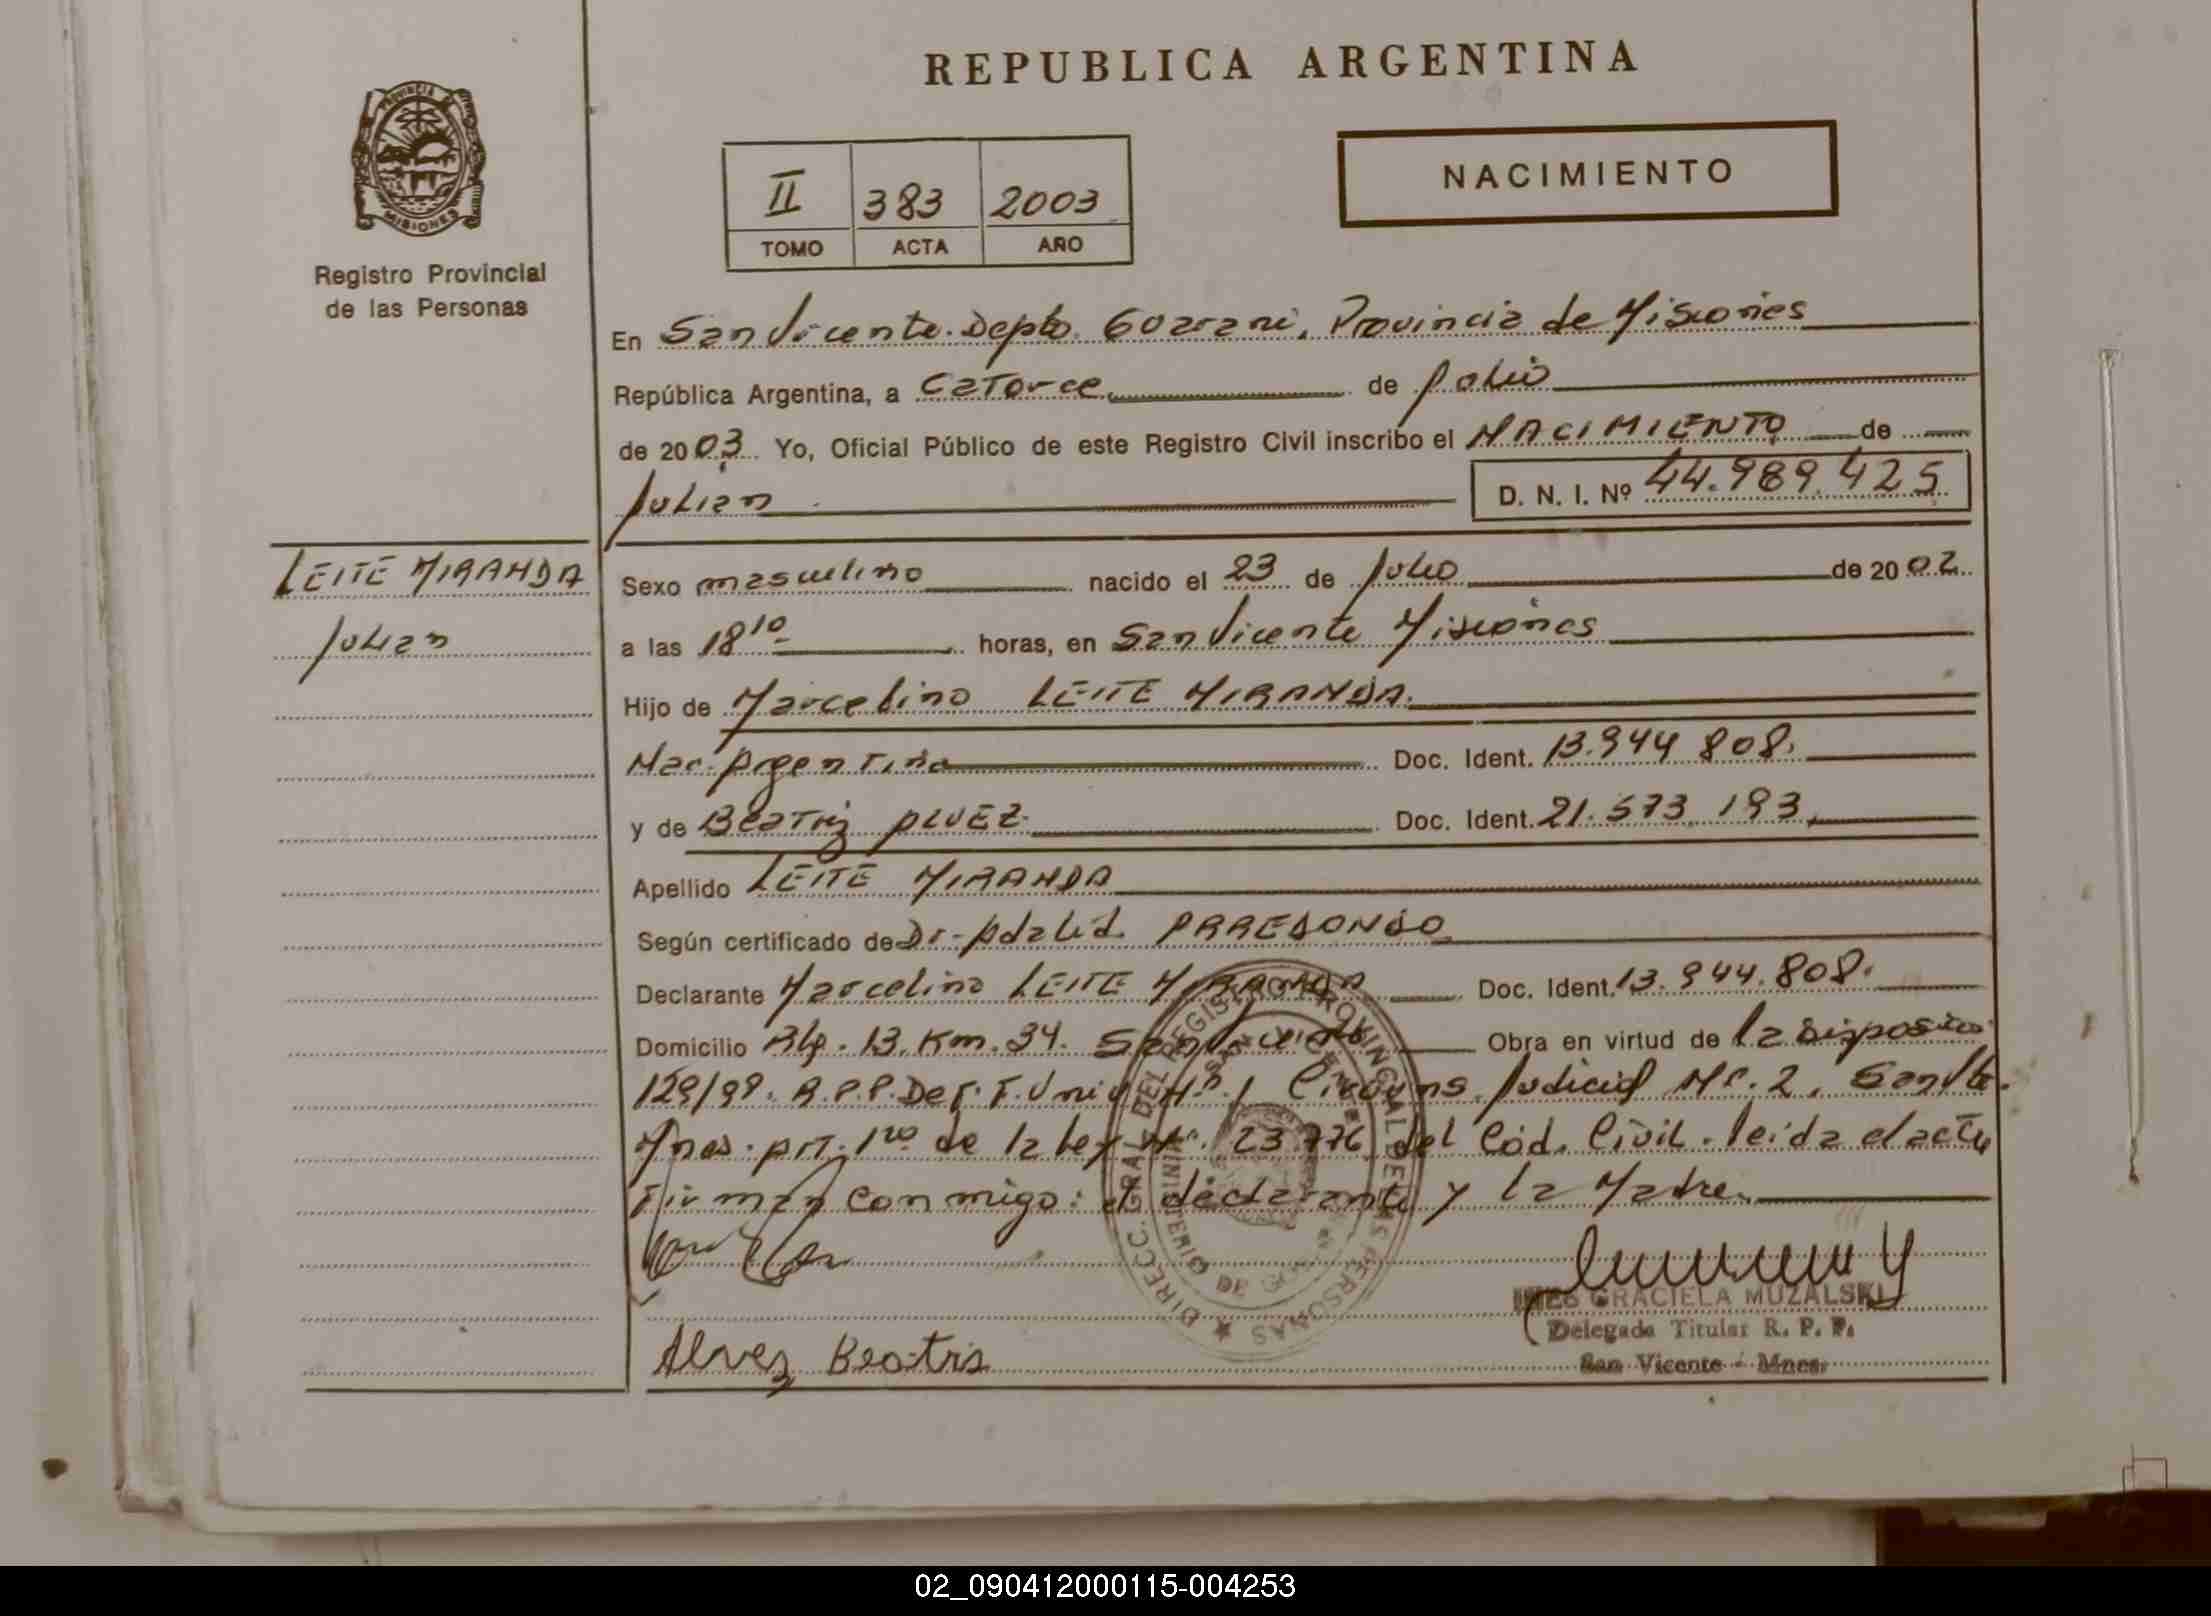 REPUBLICA ARGENTINA
PROVINCIA DE
MISIONES
Registro Provincial
de las Personas
II 383 2003
TOMO ACTA AÑO
NACIMIENTO
En San Vicente. Depto. Guarani, Provincia de Misiones
República Argentina, a Catorce de Julio
de 2003. Yo, Oficial Público de este Registro Civil inscribo el NACIMIENTO de
Julian
D. N. I. Nº 44.989.425
LEITE MIRANDA
Julian
Sexo masculino nacido el 23 de Julio de 2002
a las 18 10 horas, en San Vicente Misiones
Hijo de Marcelino LEITE MIRANDA.
Nac. Argentina Doc. Ident. 13.944 808.
y de Beatriz ALVEZ. Doc. Ident. 21.573.193
Apellido LEITE MIRANDA
Según certificado de Dr. Adalid ARREDONDO
Declarante Marcelino LEITE MIRANDA Doc. Ident. 13.944.808.
Domicilio 13. Km. 34. San Vicente Obra en virtud de la Disposicio
129/99. R.P.P. Judicial 2, San Vte.
Mnes. Art. 1ro de la Ley Nº. 23 776 del Cód. Civil. leida el acta
Firman conmigo: el declarante y la Madre.
DIRECC. GRAL. DEL REGISTRO PROVINCIAL DE LAS PERSONAS
SAN VICENTE
INES GRACIELA MUZALSKI
Delegada Titular R. P. P.
San Vicente - Mnes.
Alvez Beatris
02_090412000115-004253